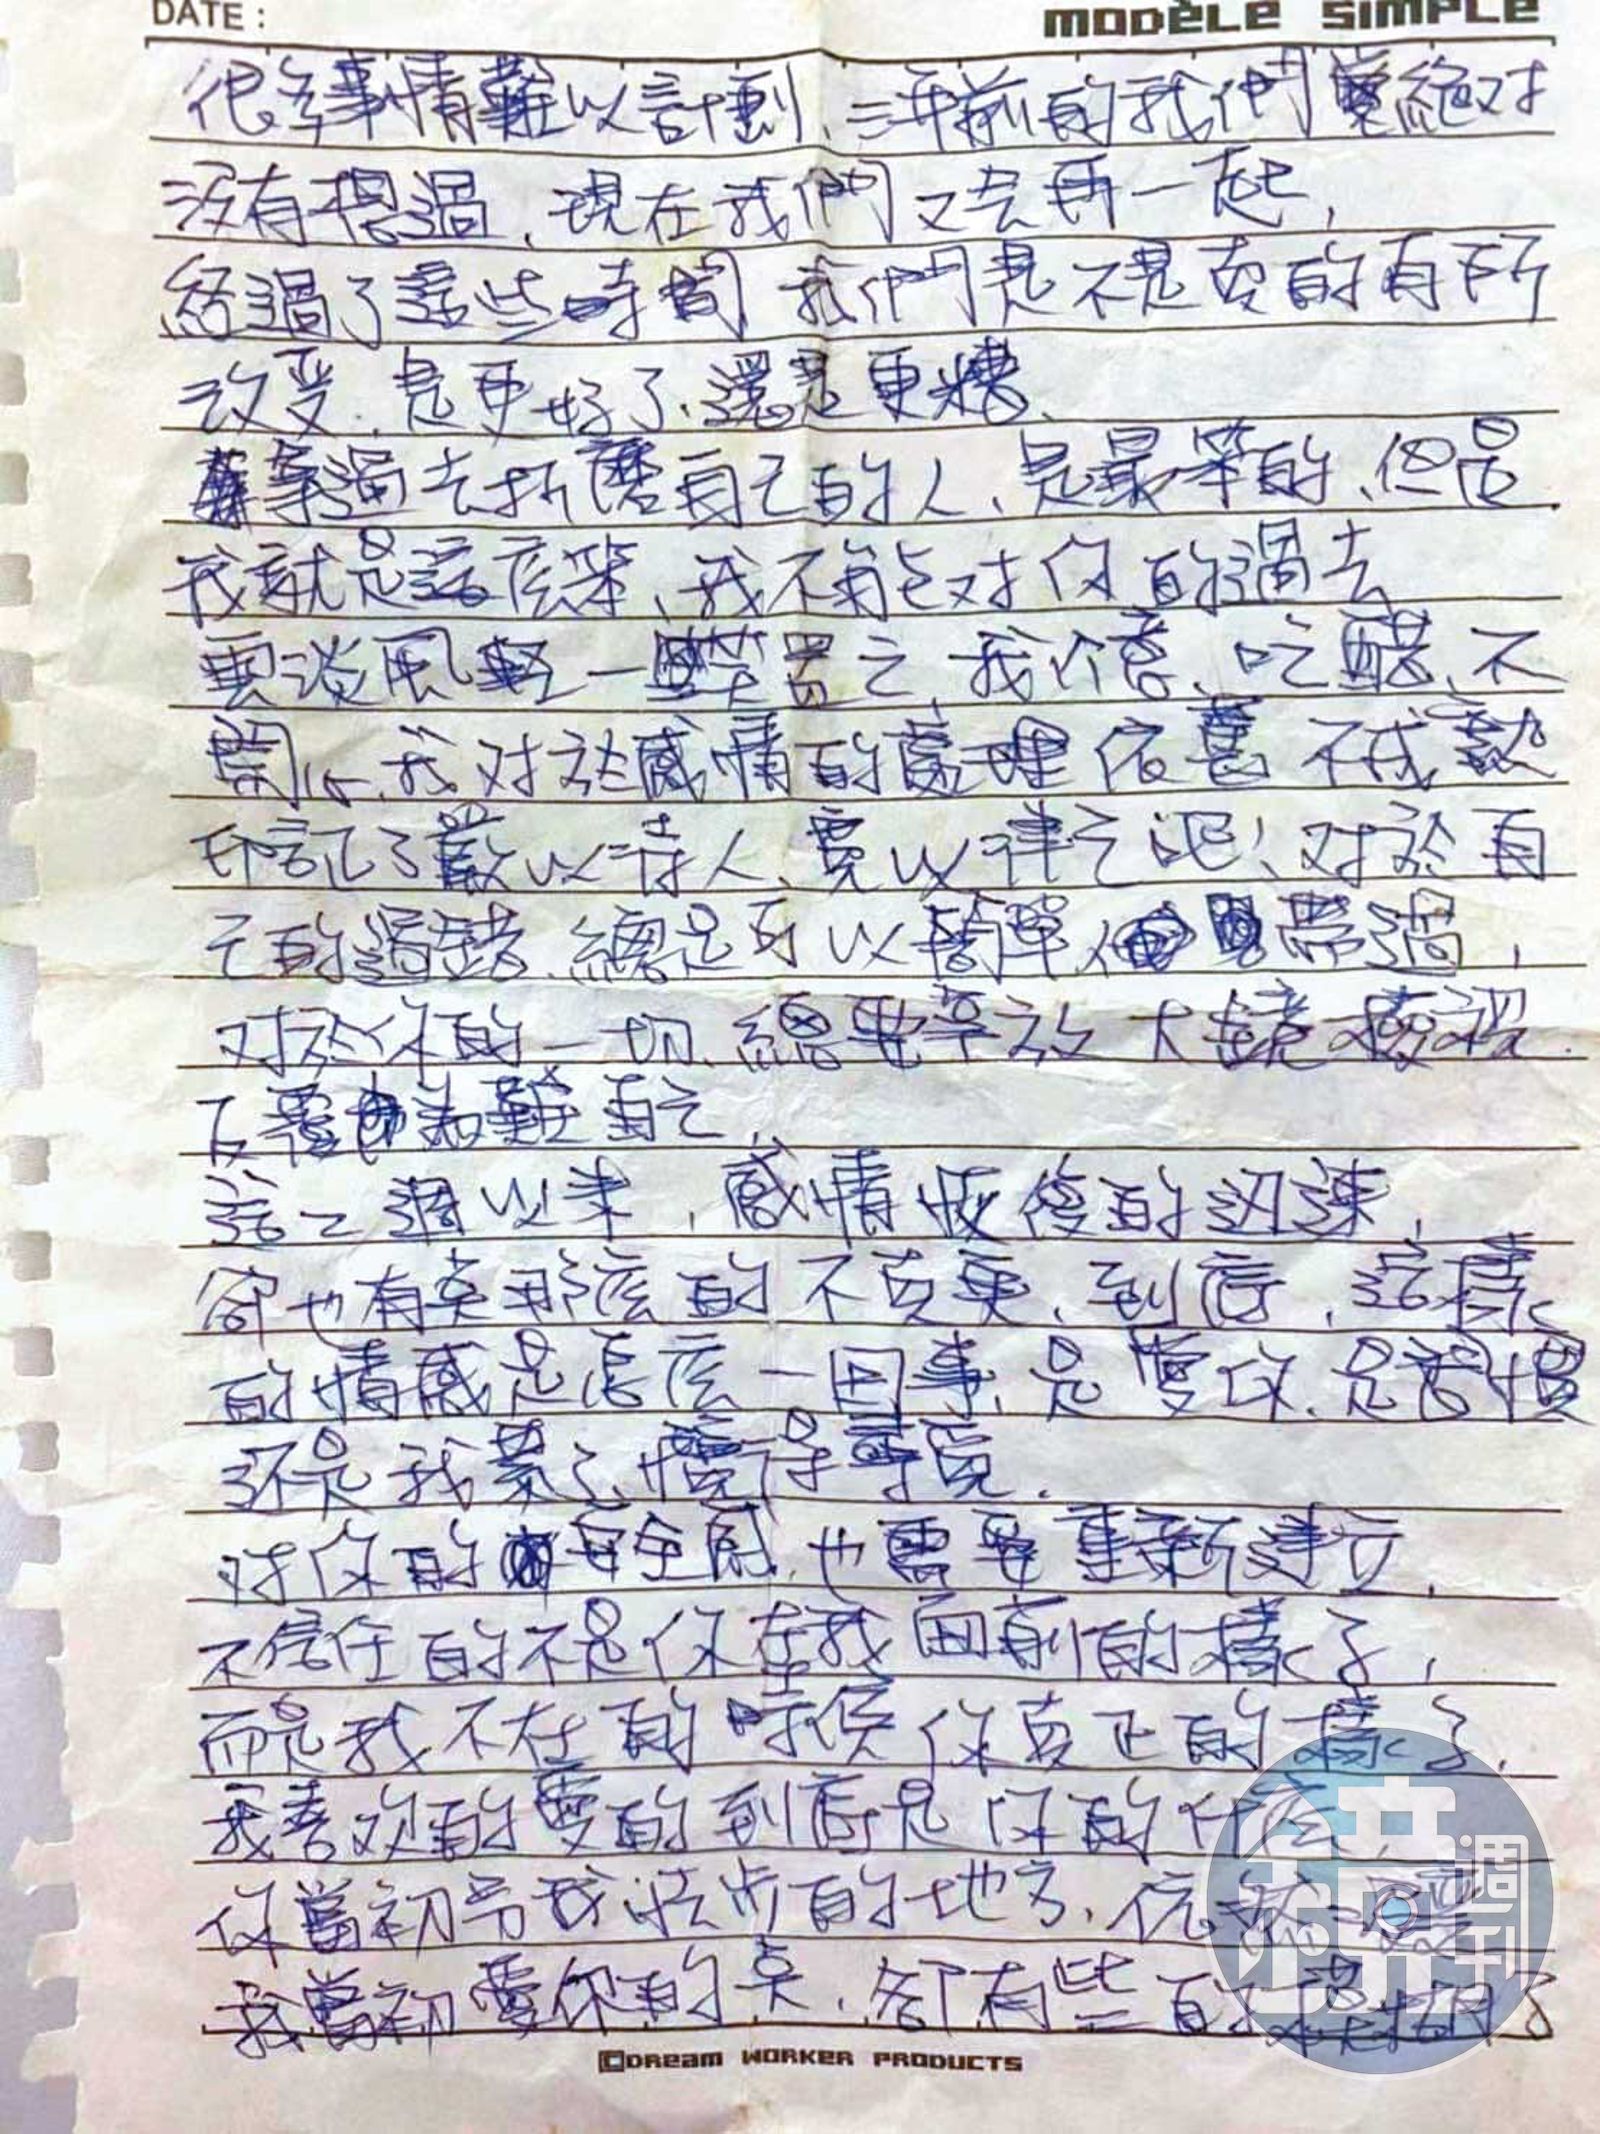 DATE:
MODÈLE SIMPLE
很多事情難以計劃、三年前的我們絕对
沒有想過、現在我們又会再一起,
經過了這些時間 我們是不是真的有所
改变.是更好了、還是更糟、
拿過去折磨自己的人、是最笨的、但是
我就是這麼笨、我不能对你的過去
雲淡風輕一笑置之、我介意、吃醋、不
開心、我对於感情的處理依舊不成熟
忘了嚴以待人、寬以律己吧、对於自
己的過錯、總是可以簡單帶過,
对於你的一切、總要拿放大鏡檢視.
反覆為難自己,
這二週以來,感情恢復的迅速,
卻也有点那麼的不真實、到底,這樣
的情感是怎麼一回事、是愛你、是習慣
还是我累了、懶得尋覓.
对你的安全感,也需要重新建立,
不信任的不是你在我面前的樣子,
而是我不在的時候你真正的樣子.
我喜欢的愛的到底是你的什麼、
你當初令我活的地方、
我當初愛你的点、都有些的模糊了
©DREAM WORKER PRODUCTS
鏡週刊